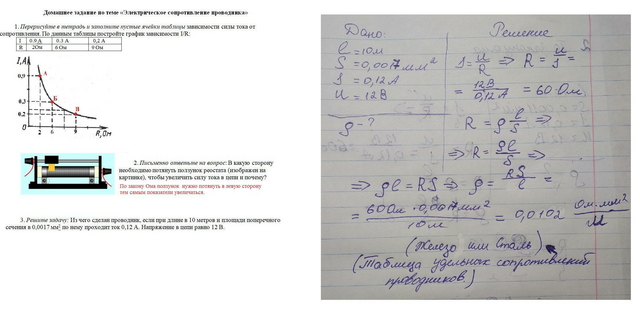 Домашнее задание по теме «Электрическое сопротивление проводника»
1. Перерисуйте в тетрадь и заполните пустые ячейки таблицы зависимости силы тока от
сопротивления. По данным таблицы постройте график зависимости I/R:
I 0.9 А 0.3 А 0,2 А
R 2Ом 6 Ом 9 Ом
I, А
0,9 А
0,3 Б
0.2 В
2 6 9 R, Ом
2. Письменно ответьте на вопрос: В какую сторону
необходимо потянуть ползунок реостата (изображен на
картинке), чтобы увеличить силу тока в цепи и почему?
По закону Ома ползунок нужно потянуть в левую сторону
тем самым показатели увеличится.
3. Решите задачу: Из чего сделан проводник, если при длине в 10 метров и площади поперечного
сечения в 0,0017 мм² по нему проходит ток 0,12 А. Напряжение в цепи равно 12 В.
Дано: Решение
l = 10м
S = 0,0017мм²
I = 0,12А
U = 12В
ρ - ?
I = U/R => R = U/I =
= 12В/0,12А = 60 Ом.
R = ρ l/S =>
=> R = ρl/S =>
=> ρl = RS => ρ = RS/l =
= 60Ом · 0,0017мм²/10м = 0,0102 Ом·мм²/м
(Железо или Сталь)
(Таблица удельных сопротивлений
проводников.)